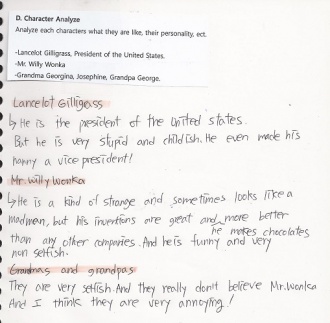 D. Character Analyze
Analyze each characters what they are like, their personality, ect.
-Lancelot Gilligrass, President of the United States.
-Mr. Willy Wonka
-Grandma Georgina, Josephine, Grandpa George.
Lancelot Gilligrass
↳ He is the president of the united states.
But he is very stupid and childish. He even made his
nanny a vice president!
Mr. Willy Wonka
↳ He is a kind of strange and sometimes looks like a
madmen, but his inventions are great and more better
he makes chocolates
than any other companies. And he is funny and very
non selfish.
Grandmas and grandpas
They are very selfish. And they really don't believe Mr. Wonka
And I think they are very annoying!